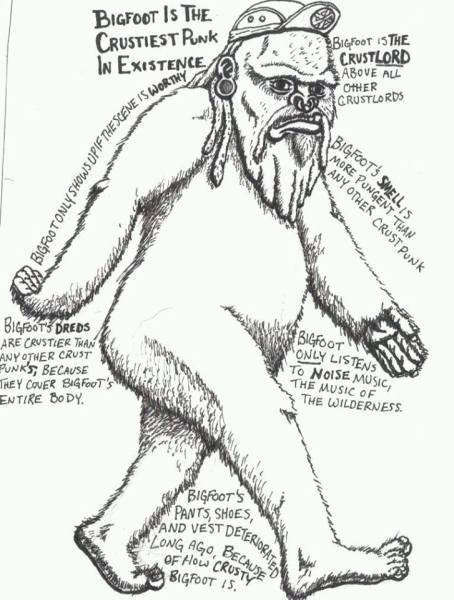 BIGFOOT IS THE
CRUSTIEST PUNK
IN EXISTENCE
BIGFOOT IS THE
CRUSTLORD
ABOVE ALL
OTHER
CRUSTLORDS
BIGFOOT ONLY SHOWS UP IF THE SCENE IS WORTHY
BIGFOOT'S SMELL IS
MORE PUNGENT THAN
ANY OTHER CRUST PUNK
BIGFOOT'S DREDS
ARE CRUSTIER THAN
ANY OTHER CRUST
PUNK'S, BECAUSE
THEY COVER BIGFOOT'S
ENTIRE BODY.
BIGFOOT
ONLY LISTENS
TO NOISE MUSIC,
THE MUSIC OF
THE WILDERNESS.
BIGFOOT'S
PANTS, SHOES,
AND VEST DETERIORATED
LONG AGO, BECAUSE
OF HOW CRUSTY
BIGFOOT IS.